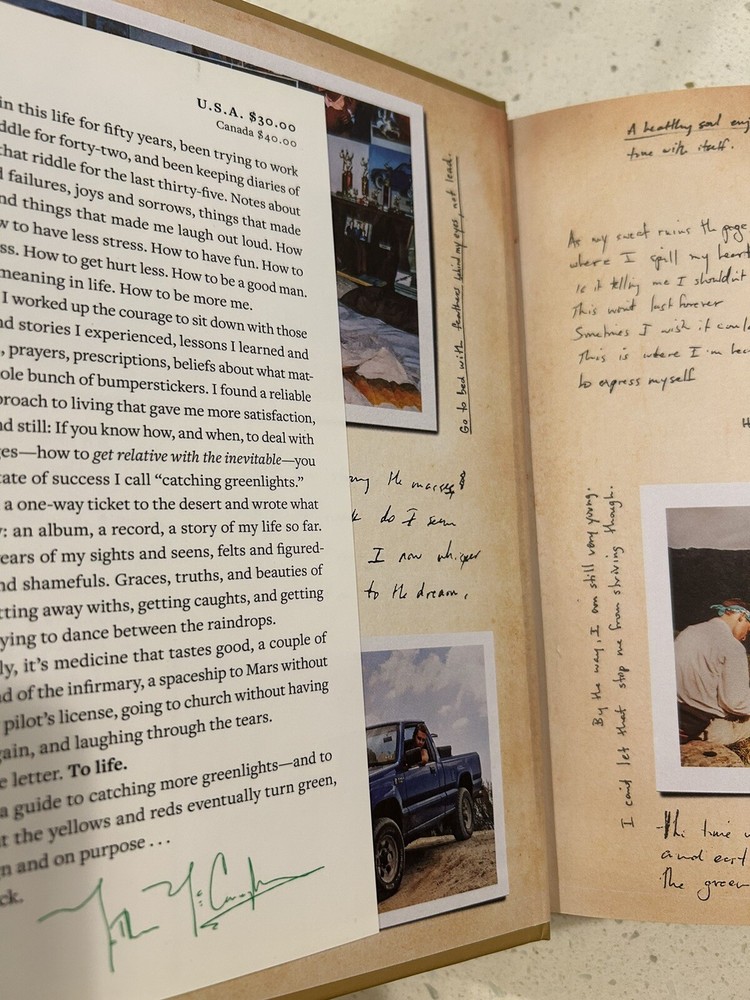 U.S.A. $30.00
Canada $40.00
in this life for fifty years, been trying to work
ddle for forty-two, and been keeping diaries of
that riddle for the last thirty-five. Notes about
failures, joys and sorrows, things that made
nd things that made me laugh out loud. How
w to have less stress. How to have fun. How to
ss. How to get hurt less. How to be a good man.
meaning in life. How to be more me.
I worked up the courage to sit down with those
nd stories I experienced, lessons I learned and
, prayers, prescriptions, beliefs about what mat-
ole bunch of bumperstickers. I found a reliable
proach to living that gave me more satisfaction,
nd still: If you know how, and when, to deal with
ges—how to get relative with the inevitable—you
tate of success I call “catching greenlights.”
a one-way ticket to the desert and wrote what
y: an album, a record, a story of my life so far.
ears of my sights and seens, felts and figured-
nd shamefuls. Graces, truths, and beauties of
tting away withs, getting caughts, and getting
ying to dance between the raindrops.
ly, it’s medicine that tastes good, a couple of
ad of the infirmary, a spaceship to Mars without
pilot’s license, going to church without having
gain, and laughing through the tears.
e letter. To life.
a guide to catching more greenlights—and to
t the yellows and reds eventually turn green,
n and on purpose . . .
ck.
Go to bed with feathers behind my eyes, not lead.
do I seem
I now whisper
to the dream,
A healthy soul enj
time with itself.
As my sweat ruins the page
where I spill my heart
Is it telling me I shouldn't
This won't last forever
Sometimes I wish it could
This is where I'm
to express myself
By the way, I am still very young.
I can't let that stop me from striving though.
the time
and
the green